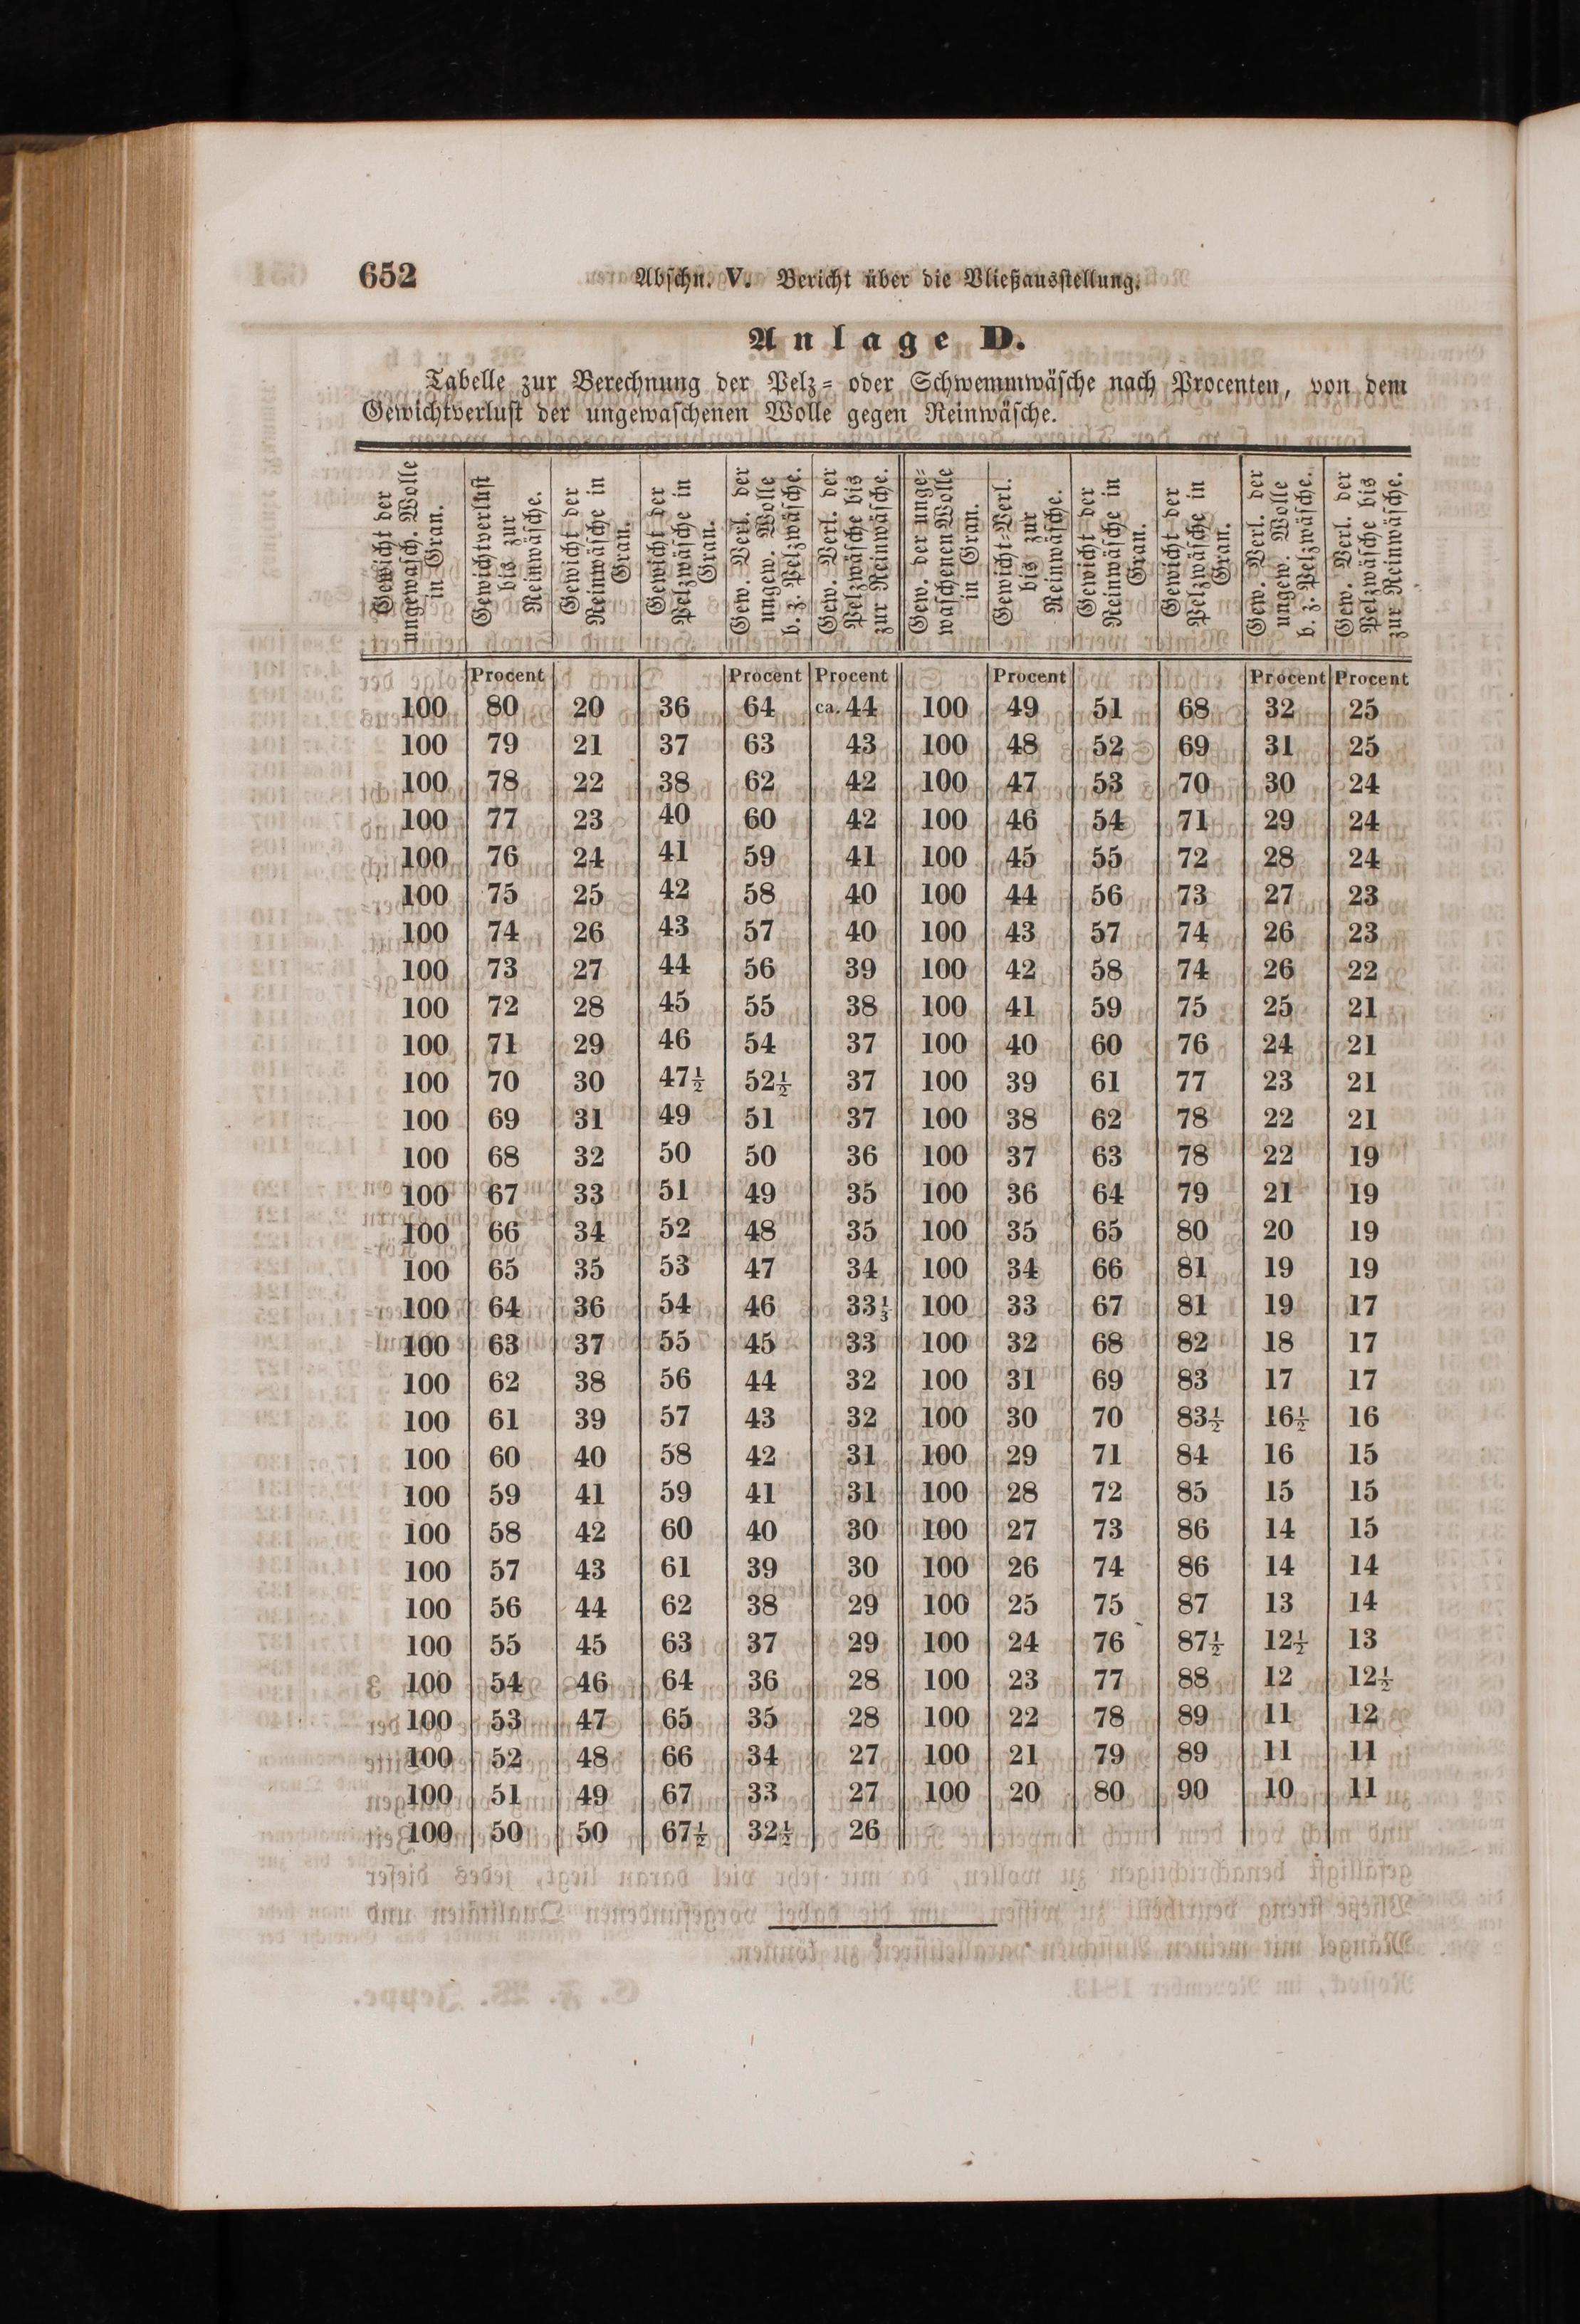 652 Abschn. V. Bericht über die Vließausstellung.
Anlage D.
Tabelle zur Berechnung der Pelz= oder Schwemmwäsche nach Procenten, von dem
Gewichtverlust der ungewaschenen Wolle gegen Reinwäsche.
Gewicht der
ungewasch. Wolle
in Gran.
Gewichtverlust
bis zur
Reinwäsche.
Gewicht der
Reinwäsche in
Gran.
Gewicht der
Pelzwäsche in
Gran.
Gew. Verl. der
ungew. Wolle
b. z. Pelzwäsche.
Gew. Verl. der
Pelzwäsche bis
zur Reinwäsche.
Gew. der unge=
waschenen Wolle
in Gran.
Gewicht=Verl.
bis zur
Reinwäsche.
Gewicht der
Reinwäsche in
Gran.
Gewicht der
Pelzwäsche in
Gran.
Gew. Verl. der
ungew. Wolle
b. z. Pelzwäsche.
Gew. Verl. der
Pelzwäsche bis
zur Reinwäsche.
Procent Procent Procent Procent Procent Procent
100 80 20 36 64 ca. 44 100 49 51 68 32 25
100 79 21 37 63 43 100 48 52 69 31 25
100 78 22 38 62 42 100 47 53 70 30 24
100 77 23 40 60 42 100 46 54 71 29 24
100 76 24 41 59 41 100 45 55 72 28 24
100 75 25 42 58 40 100 44 56 73 27 23
100 74 26 43 57 40 100 43 57 74 26 23
100 73 27 44 56 39 100 42 58 74 26 22
100 72 28 45 55 38 100 41 59 75 25 21
100 71 29 46 54 37 100 40 60 76 24 21
100 70 30 47½ 52½ 37 100 39 61 77 23 21
100 69 31 49 51 37 100 38 62 78 22 21
100 68 32 50 50 36 100 37 63 78 22 19
100 67 33 51 49 35 100 36 64 79 21 19
100 66 34 52 48 35 100 35 65 80 20 19
100 65 35 53 47 34 100 34 66 81 19 19
100 64 36 54 46 33⅓ 100 33 67 81 19 17
100 63 37 55 45 33 100 32 68 82 18 17
100 62 38 56 44 32 100 31 69 83 17 17
100 61 39 57 43 32 100 30 70 83½ 16½ 16
100 60 40 58 42 31 100 29 71 84 16 15
100 59 41 59 41 31 100 28 72 85 15 15
100 58 42 60 40 30 100 27 73 86 14 15
100 57 43 61 39 30 100 26 74 86 14 14
100 56 44 62 38 29 100 25 75 87 13 14
100 55 45 63 37 29 100 24 76 87½ 12½ 13
100 54 46 64 36 28 100 23 77 88 12 12½
100 53 47 65 35 28 100 22 78 89 11 12
100 52 48 66 34 27 100 21 79 89 11 11
100 51 49 67 33 27 100 20 80 90 10 11
100 50 50 67½ 32½ 26